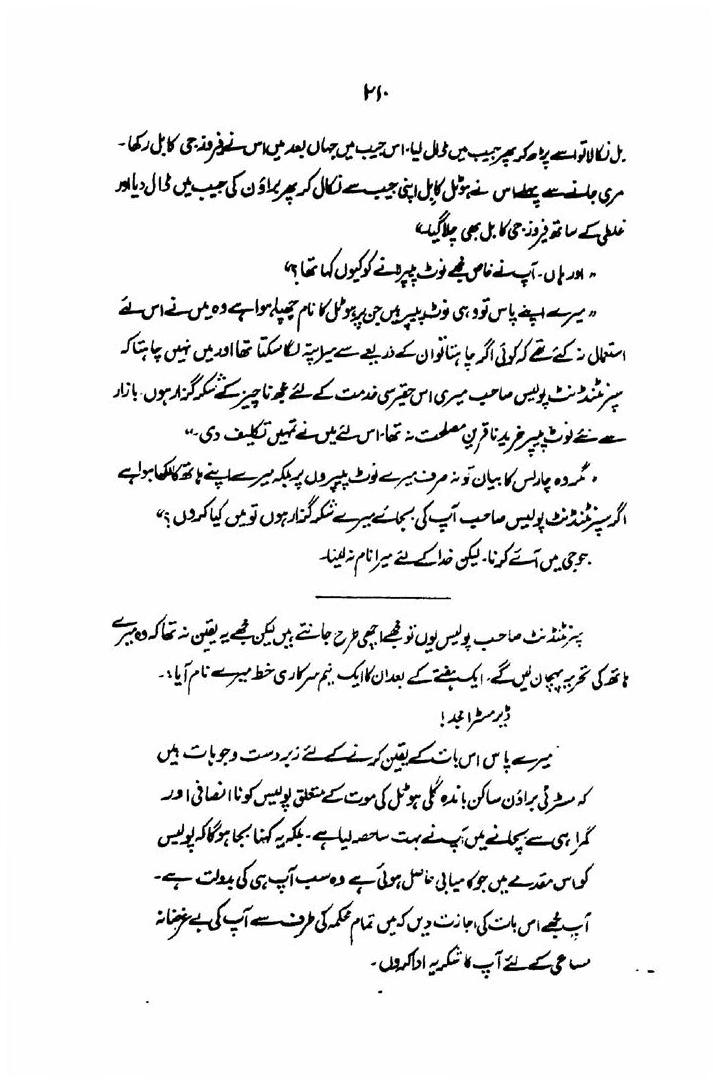 ۲۱۰
بل نکالا تو اسے پڑھ کر پھر جیب میں ڈال لیا۔ اس جیب میں جہاں بعد میں اس نے فیروز جی کا بل رکھا۔
مری جانے سے پہلے اس نے ہوٹل کا بل اپنی جیب سے نکال کر پھر براؤن کی جیب میں ڈال دیا اور
غلطی کے ساتھ فیروز جی کا بل بھی چلا گیا۔"
"اور ہاں۔ آپ نے خاص مجھے نوٹ پیپر لانے کو کیوں کہا تھا؟"
"میرے اپنے پاس تو وہی نوٹ پیپر ہیں جن پر ہوٹل کا نام چھپا ہوا ہے وہ میں نے اس لئے
استعمال نہ کئے تھے کہ کوئی اگر چاہتا تو ان کے ذریعے سے میرا پتہ لگا سکتا تھا اور میں نہیں چاہتا کہ
سپرنٹنڈنٹ پولیس صاحب میری اس حقیر سی خدمت کے لئے مجھ ناچیز کے شکر گزار ہوں۔ بازار
سے نئے نوٹ پیپر خریدنا قرینِ مصلحت نہ تھا۔ اس لئے میں نے تمہیں تکلیف دی۔"
"مگر وہ چارلس کا بیان تو نہ صرف میرے نوٹ پیپروں پر بلکہ میرے اپنے ہاتھ کا لکھا ہوا ہے
اگر سپرنٹنڈنٹ پولیس صاحب آپ کی بجائے میرے شکر گزار ہوں تو میں کیا کروں؟"
جو جی میں آئے کرنا۔ لیکن خدا کے لئے میرا نام نہ لینا۔
سپرنٹنڈنٹ صاحب پولیس یوں تو مجھے اچھی طرح جانتے ہیں لیکن مجھے یہ یقین نہ تھا کہ وہ میرے
ہاتھ کی تحریر پہچان لیں گے۔ ایک ہفتے کے بعد ان کا ایک نیم سرکاری خط میرے نام آیا:۔
ڈیر مسٹر امجد!
میرے پاس اس بات کے یقین کرنے کے لئے زبردست وجوہات ہیں
کہ مسٹر ٹی براؤن ساکن باندہ گلی ہوٹل کی موت کے متعلق پولیس کو ناانصافی اور
گمراہی سے بچانے میں آپ نے بہت سا حصہ لیا ہے۔ بلکہ یہ کہنا بجا ہوگا کہ پولیس
کو اس مقدمے میں جو کامیابی حاصل ہوئی ہے وہ سب آپ ہی کی بدولت ہے۔
آپ مجھے اس بات کی اجازت دیں کہ میں تمام محکمہ کی طرف سے آپ کی بے غرضانہ
مساعی کے لئے آپ کا شکریہ ادا کروں۔